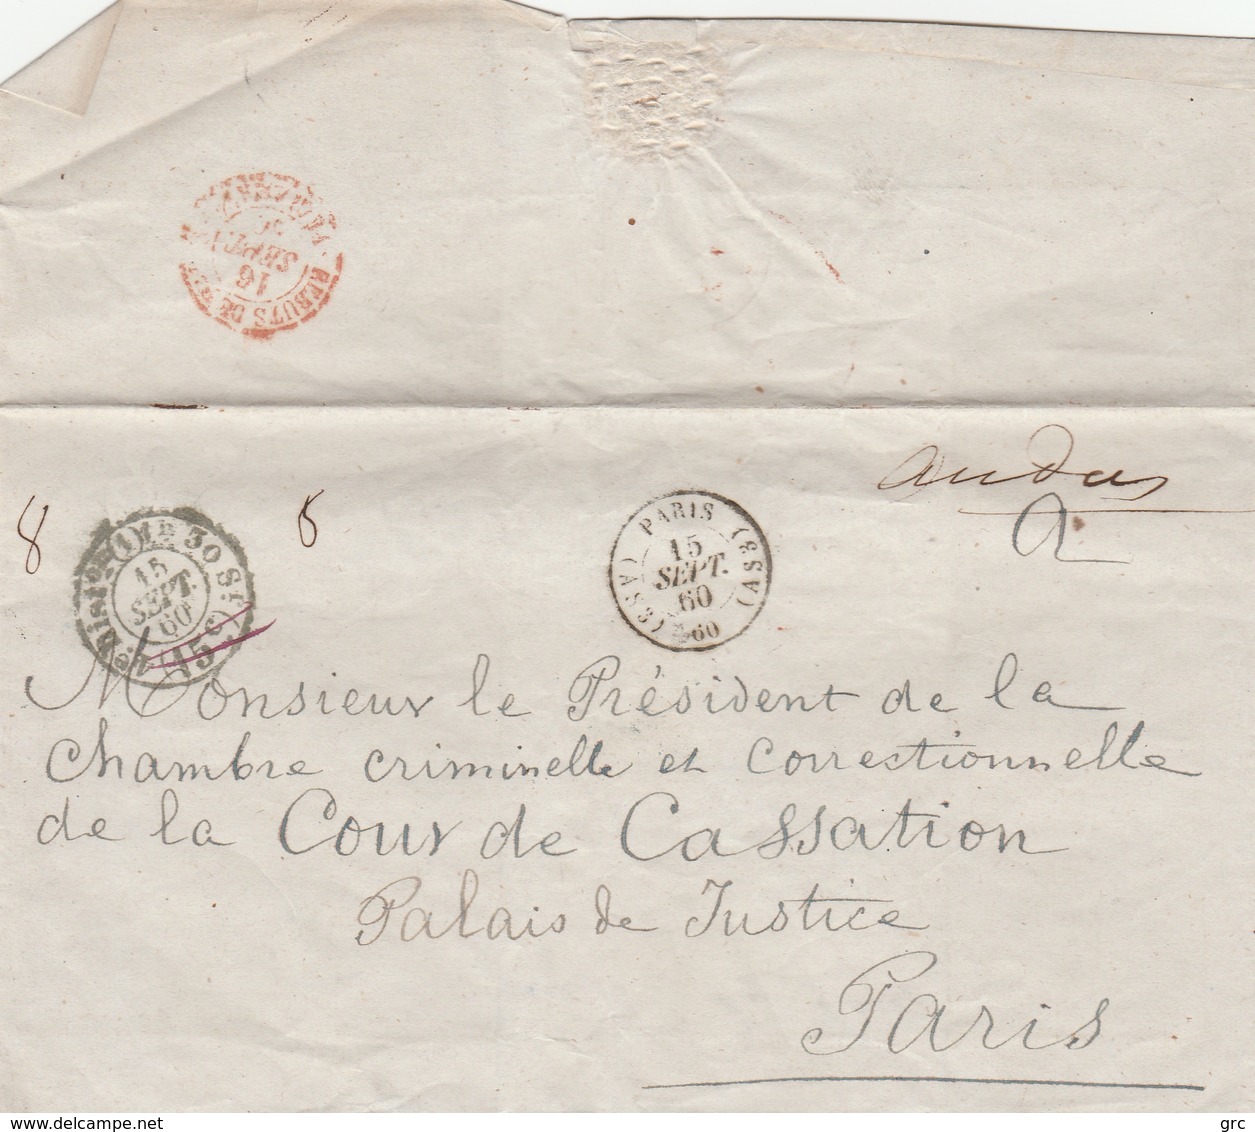 16
SEPT
REBUTS DE
8
5
andas
4e Dist on (1) 1 D 30 St
15
SEPT.
60
15 c
PARIS
15
SEPT.
60
(60)
Monsieur le Président de la
chambre criminelle et correctionnelle
de la Cour de Cassation
Palais de Justice
Paris
www.delcampe.net
grc